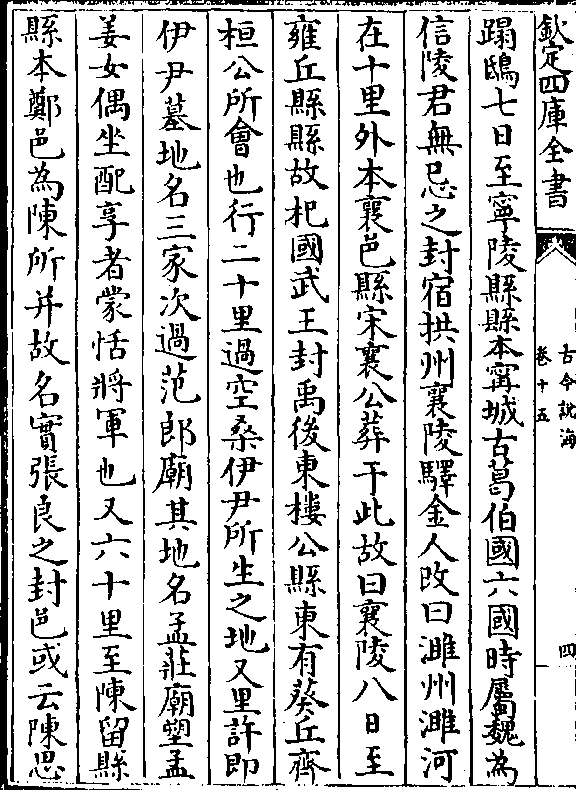 欽定四庫全書
古今說海
卷十五
四
蹋鴟七日至寧陵縣縣本甯城古葛伯國六國時屬魏為
信陵君無忌之封宿拱州襄陵驛金人改曰濉州濉河
在十里外本襄邑縣宋襄公葬于此故曰襄陵八日至
雍丘縣縣故杞國武王封禹後東樓公縣東有葵丘齊
桓公所會也行二十里過空桑伊尹所生之地又里許即
伊尹墓地名三家次過范郎廟其地名孟莊廟塑孟
姜女偶坐配享者蒙恬將軍也又六十里至陳留縣
縣本鄭邑為陳所并故名實張良之封邑或云陳思